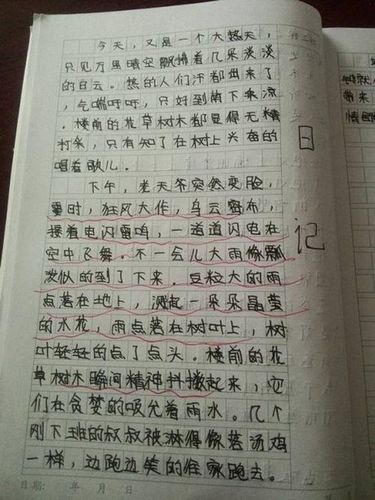 今天，又是一个大热天，
只见万里晴空飘着几朵淡淡
的白云。热的人们汗都出来了
，气喘吁吁，只好到荫下乘凉
。楼前的花草树木都显得无精
打采，只有知了在树上兴奋的
唱着歌儿。
下午，老天爷突然变脸，
霎时，狂风大作，乌云密布，
接着电闪雷鸣，一道道闪电在
空中飞舞。不一会儿大雨像瓢
泼似的到了下来。豆粒大的雨
点落在地上，溅起一朵朵晶莹
的水花，雨点落在树叶上，树
叶轻轻的点了点头。楼前的花
草树木瞬间精神抖擞起来，它
们在贪婪的吸允着雨水。几个
刚下班的叔叔被淋得像落汤鸡
一样，边跑边笑的往家跑去。
日期： 年 月 日
日记